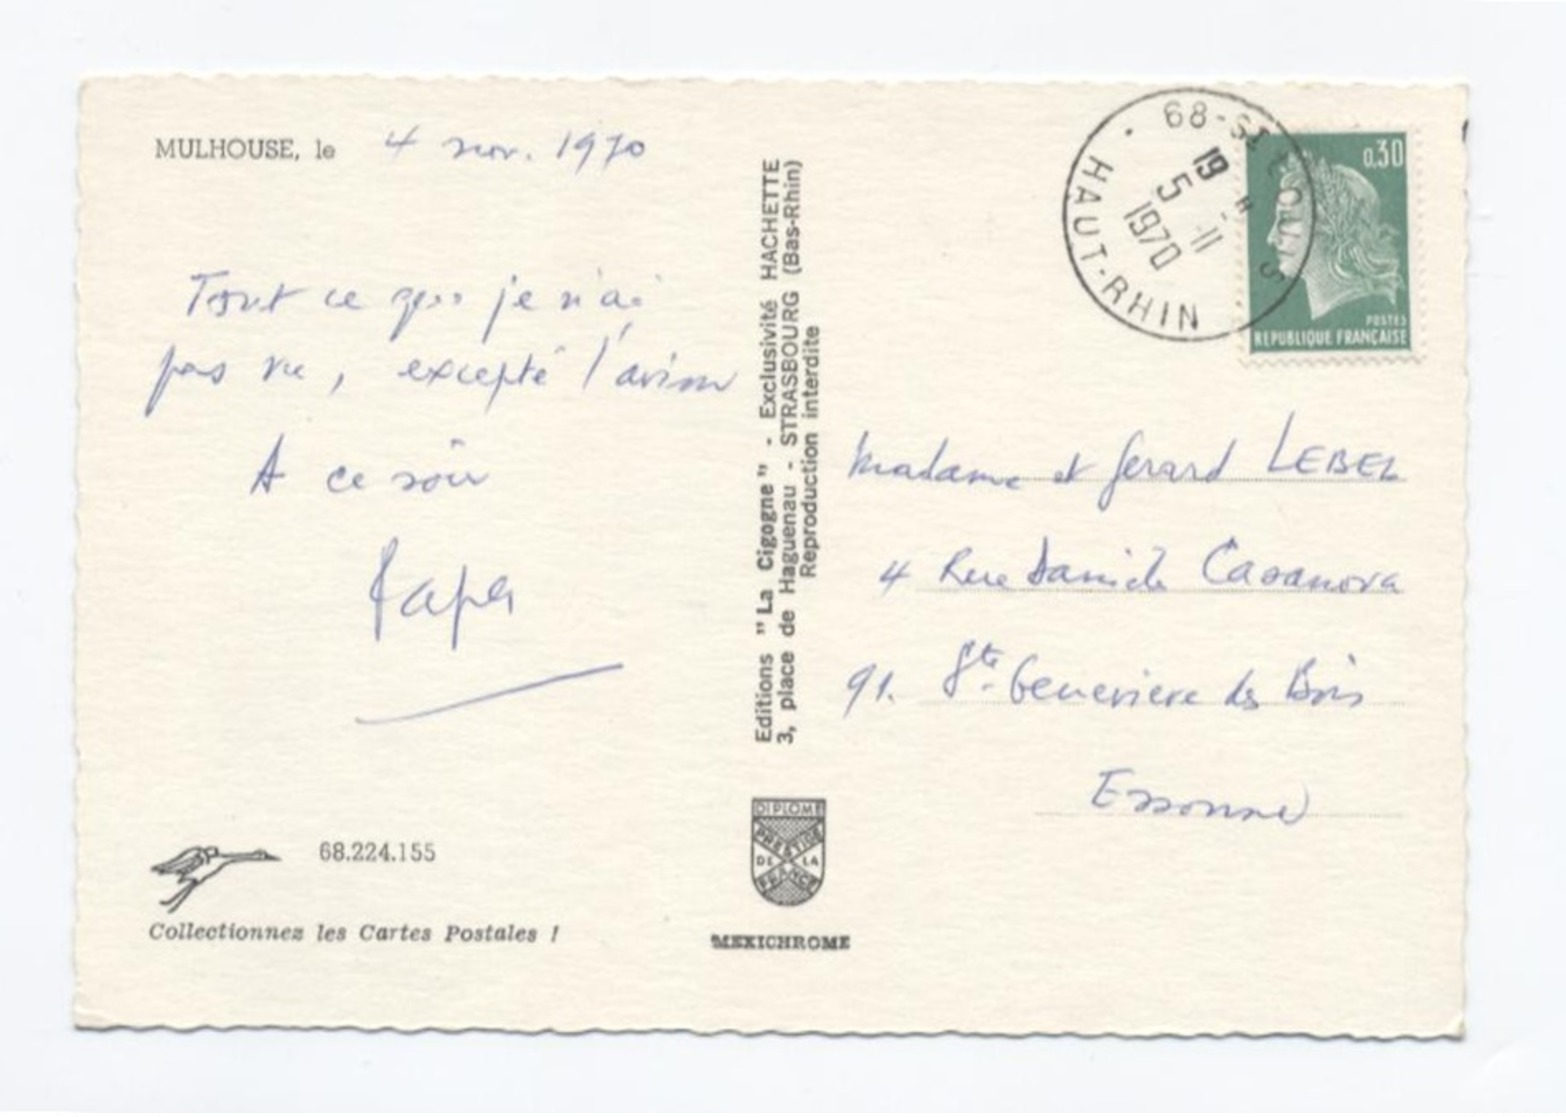 MULHOUSE, le 4 nov. 1970
Tout ce que je n'ai
pas vu, excepté l'avion
A ce soir
Papa
68.224.155
Collectionnez les Cartes Postales !
Editions "La Cigogne" - Exclusivité HACHETTE
3, place de Haguenau - STRASBOURG (Bas-Rhin)
Reproduction interdite
DIPLOME
PRESTIGE
DE LA
FRANCE
MEXICHROME
68-ST LOUIS
19 H
5-11
1970
HAUT-RHIN
0,30
POSTES
REPUBLIQUE FRANÇAISE
Madame et Gerard LEBEL
4 Rue Danièle Casanova
91. Ste Genevieve des Bois
Essonne